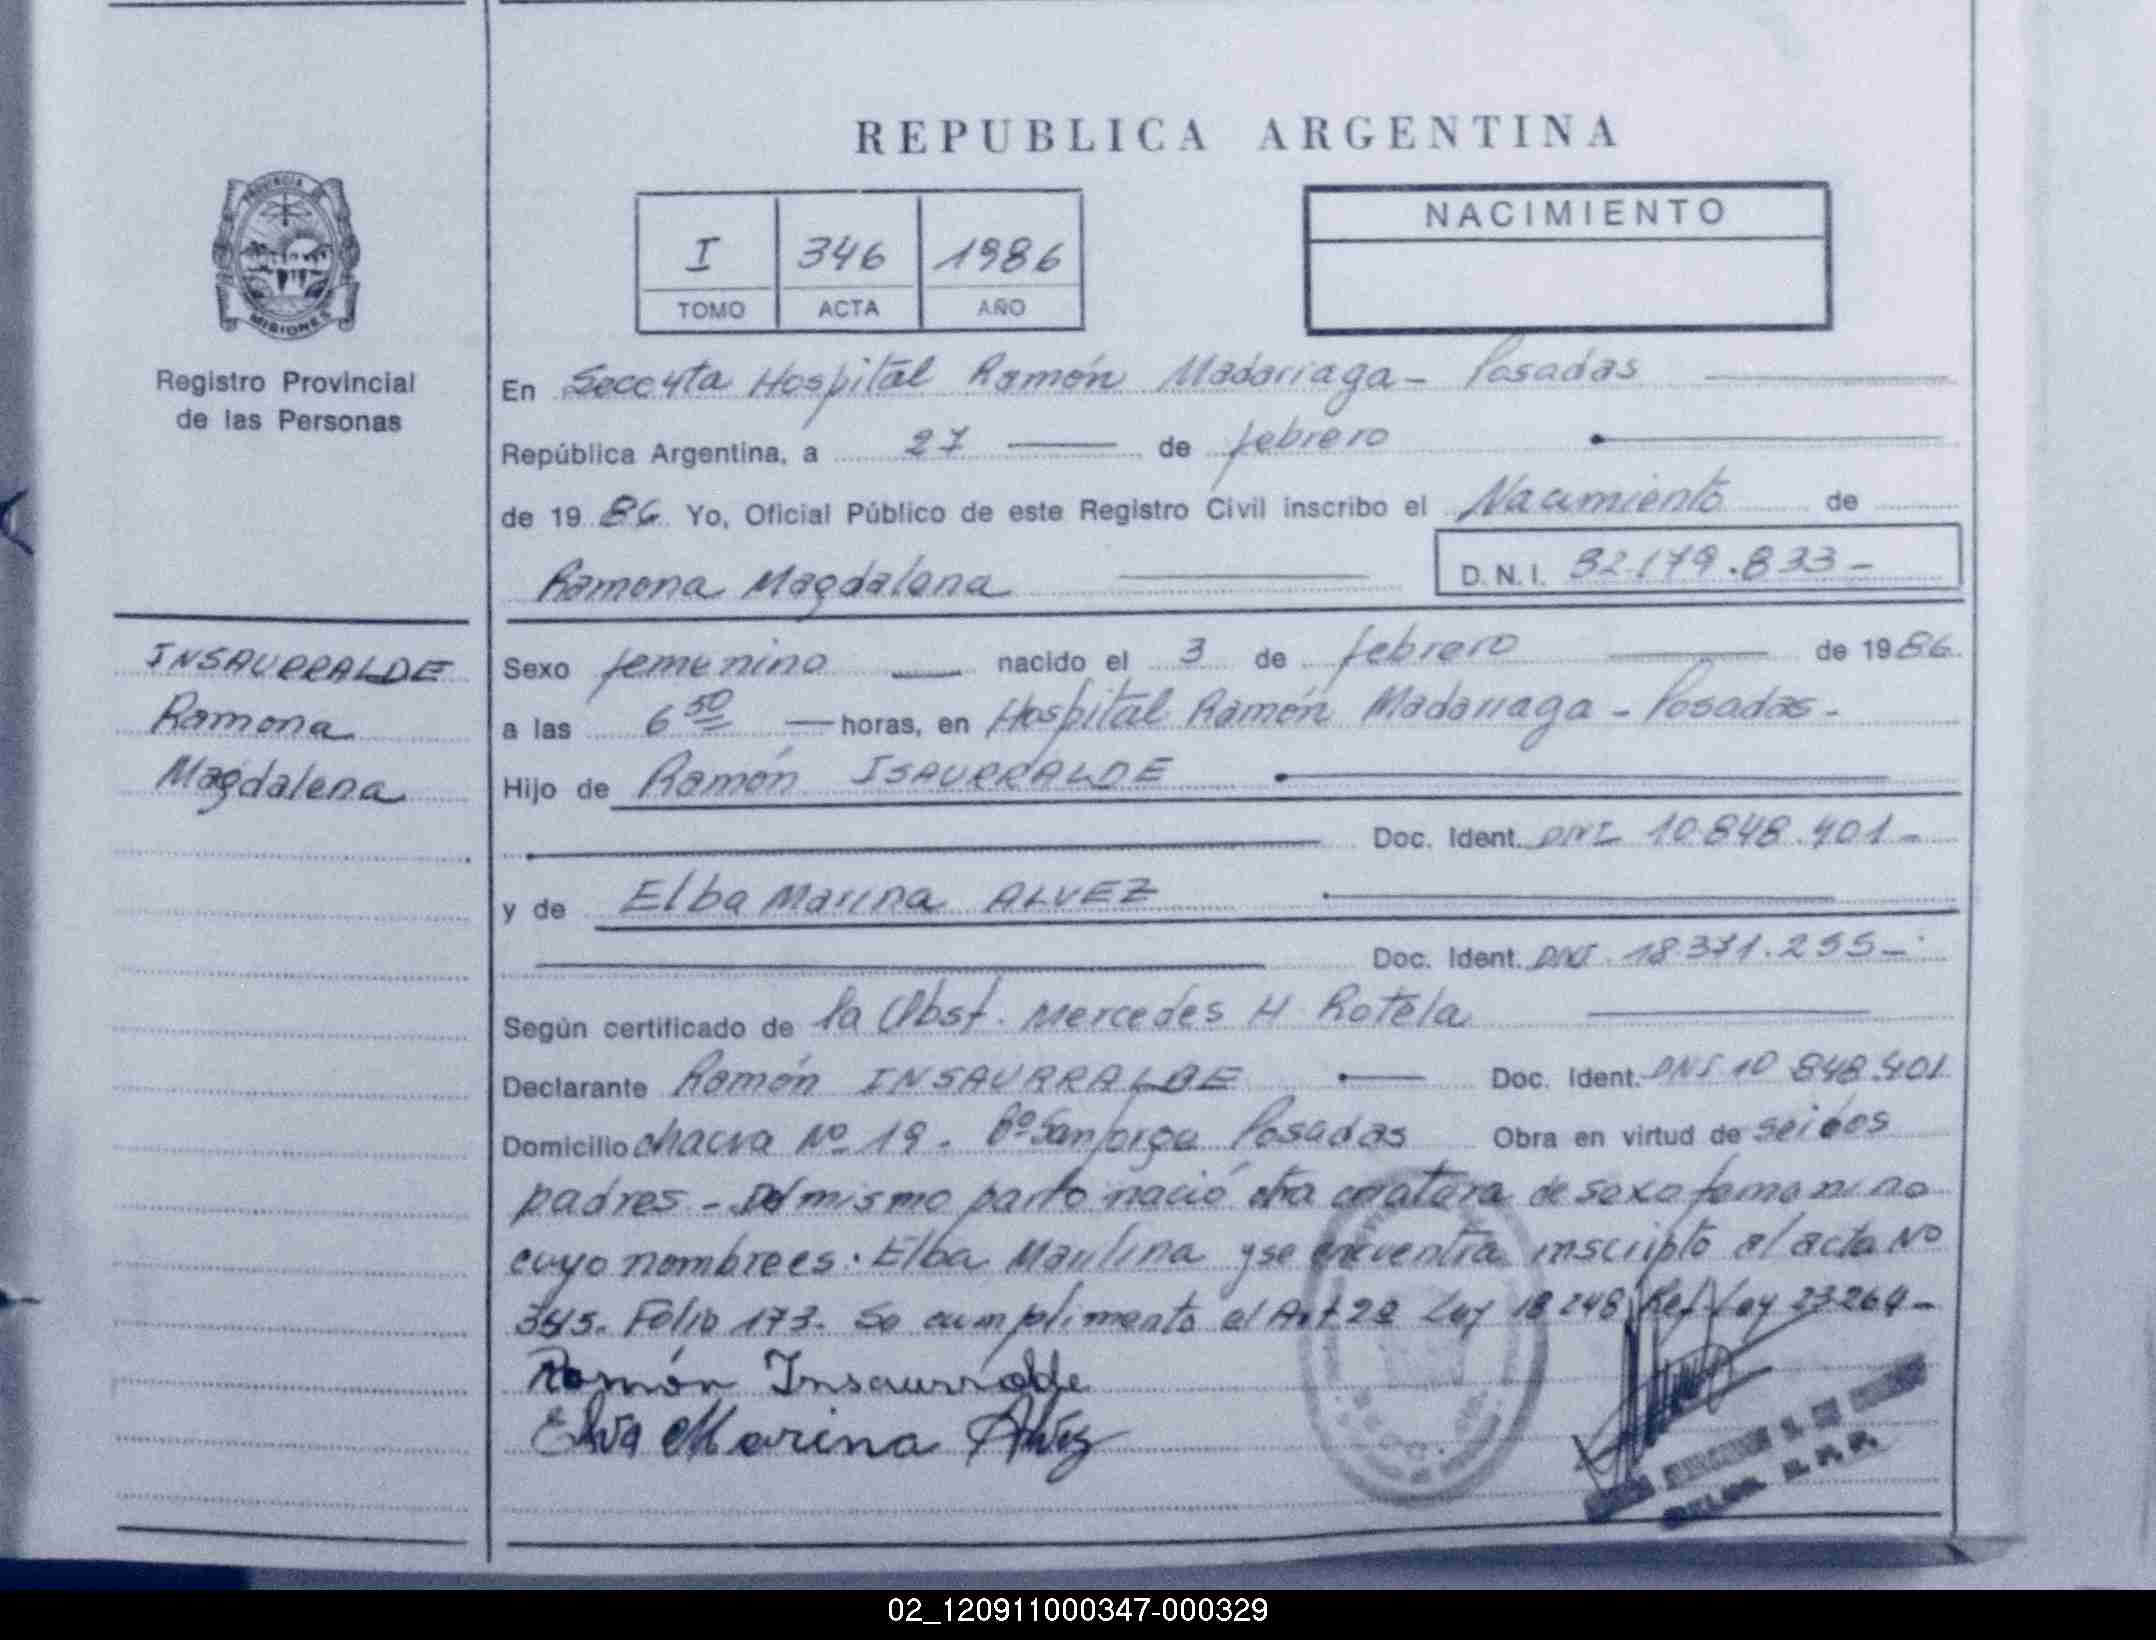 REPUBLICA ARGENTINA
PROVINCIA DE
MISIONES
Registro Provincial
de las Personas
I 346 1986
TOMO ACTA AÑO
NACIMIENTO
En Secc 4ta Hospital Ramón Madariaga - Posadas
República Argentina, a 27 de febrero
de 19 86 Yo, Oficial Público de este Registro Civil inscribo el Nacimiento de
Ramona Magdalena
D.N.I. 32.179.833 -
INSAURRALDE
Ramona
Magdalena
Sexo femenino nacido el 3 de febrero de 1986
a las 6 50 horas, en Hospital Ramón Madariaga - Posadas -
Hijo de Ramón ISAURRALDE
Doc. Ident. DNI 10.848.401 -
y de Elba Marina ALVEZ
Doc. Ident. DNI. 18.371.255 -
Según certificado de la Obst. Mercedes H Rotela
Declarante Ramón INSAURRALDE Doc. Ident. DNI 10 848.401
Domicilio chacra Nº 19 - Bº San Jorge Posadas Obra en virtud de ser los
padres - Del mismo parto nació otra criatura de sexo femenino
cuyo nombre es: Elba y se encuentra inscripto al acta Nº
345. Folio 173. Se cumplimento el Art 2º Ley 18 248 Ref Ley 23264 -
Ramón Insaurralde
Elva Marina Alvez
02_120911000347-000329